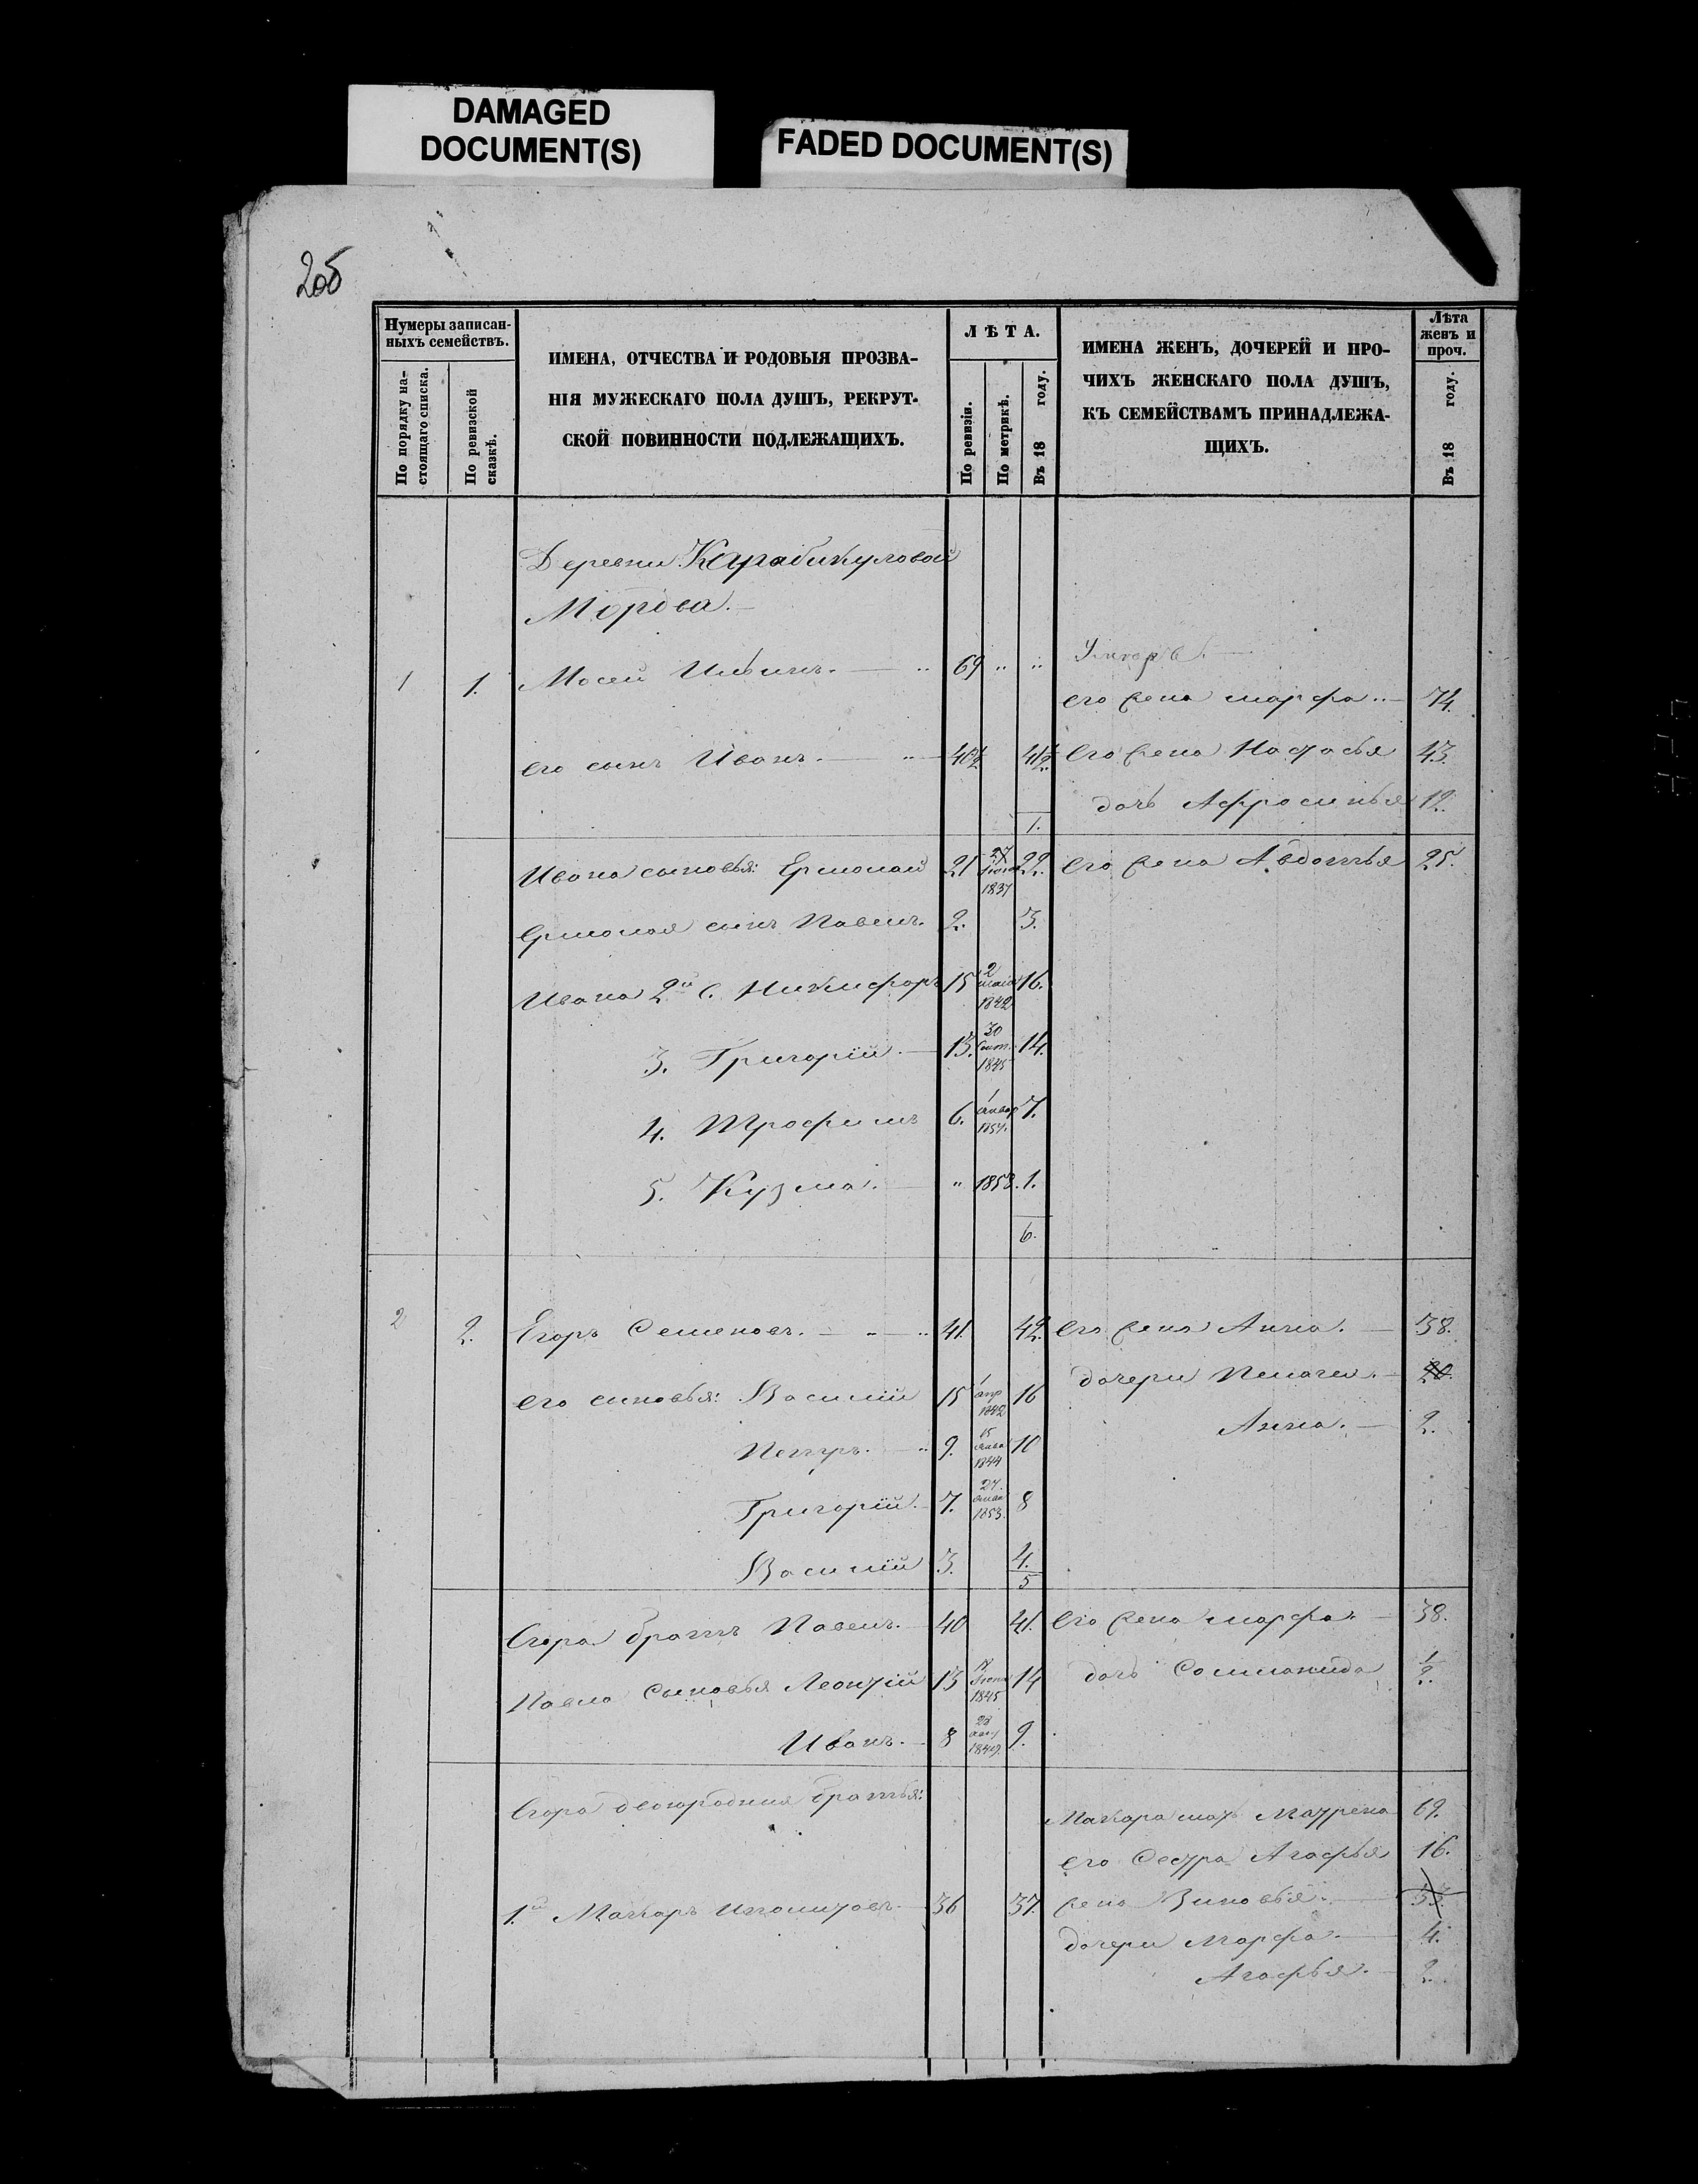 DAMAGED
DOCUMENT(S)
FADED DOCUMENT(S)
205
Нумеры записан-
ныхъ семействъ.
По порядку на-
стоящаго списка.
По ревизской
сказкѣ.
ИМЕНА, ОТЧЕСТВА И РОДОВЫЯ ПРОЗВА-
НІЯ МУЖЕСКАГО ПОЛА ДУШЪ, РЕКРУТ-
СКОЙ ПОВИННОСТИ ПОДЛЕЖАЩИХЪ.
ЛѢТА.
По ревизіи.
По метрикѣ.
Въ 18 году.
ИМЕНА ЖЕНЪ, ДОЧЕРЕЙ И ПРО-
ЧИХЪ ЖЕНСКАГО ПОЛА ДУШЪ,
КЪ СЕМЕЙСТВАМЪ ПРИНАДЛЕЖА-
ЩИХЪ.
Лѣта
женъ и
проч.
Въ 18 году.
Деревни Карабикуловой
Мордва.
1 1. Мосей Ильинъ. 69 Умеръ.
его жена Марфа 74.
его сынъ Иванъ. 40½ 41½ его жена Настасья 43.
дочь Афросинья 12.
1.
Ивана сыновья: Ермолай 21 27 1837 22. его жена Авдотья 25.
Ермолая сынъ Павелъ. 2. 3.
Ивана 2й с. Никифоръ 15 2 мая 1842 16.
3. Григорій. 13. 30 Сент. 1845 14.
4. Трофимъ 6. 1 январ 7.
5. Кузма. " 1858. 1.
6.
2 2. Егоръ Семеновъ. 41. 42. его жена Анна. 38.
дочери Пелагея. 20.
его сыновья: Василій 15 1 апр 1842 16
Анна. 2.
Петръ. 9. 15 1844 10
Григорій. 7. 27. 1853. 8
Василій 3. 4.
5
Егора братъ Павелъ. 40 41. его жена Марфа. 38.
Павла Сыновья Леонтій 13 1845 14 дочь Соломанида ½.
Иванъ. 8 1849. 9.
Егора двоюродныя братья:
Макара мать Матрена 69.
его Сестра Агафья 16.
1й Макаръ Иполитовъ 36 37. жена Зиновья. 33.
дочери Марфа. 4.
Агафья. 2.